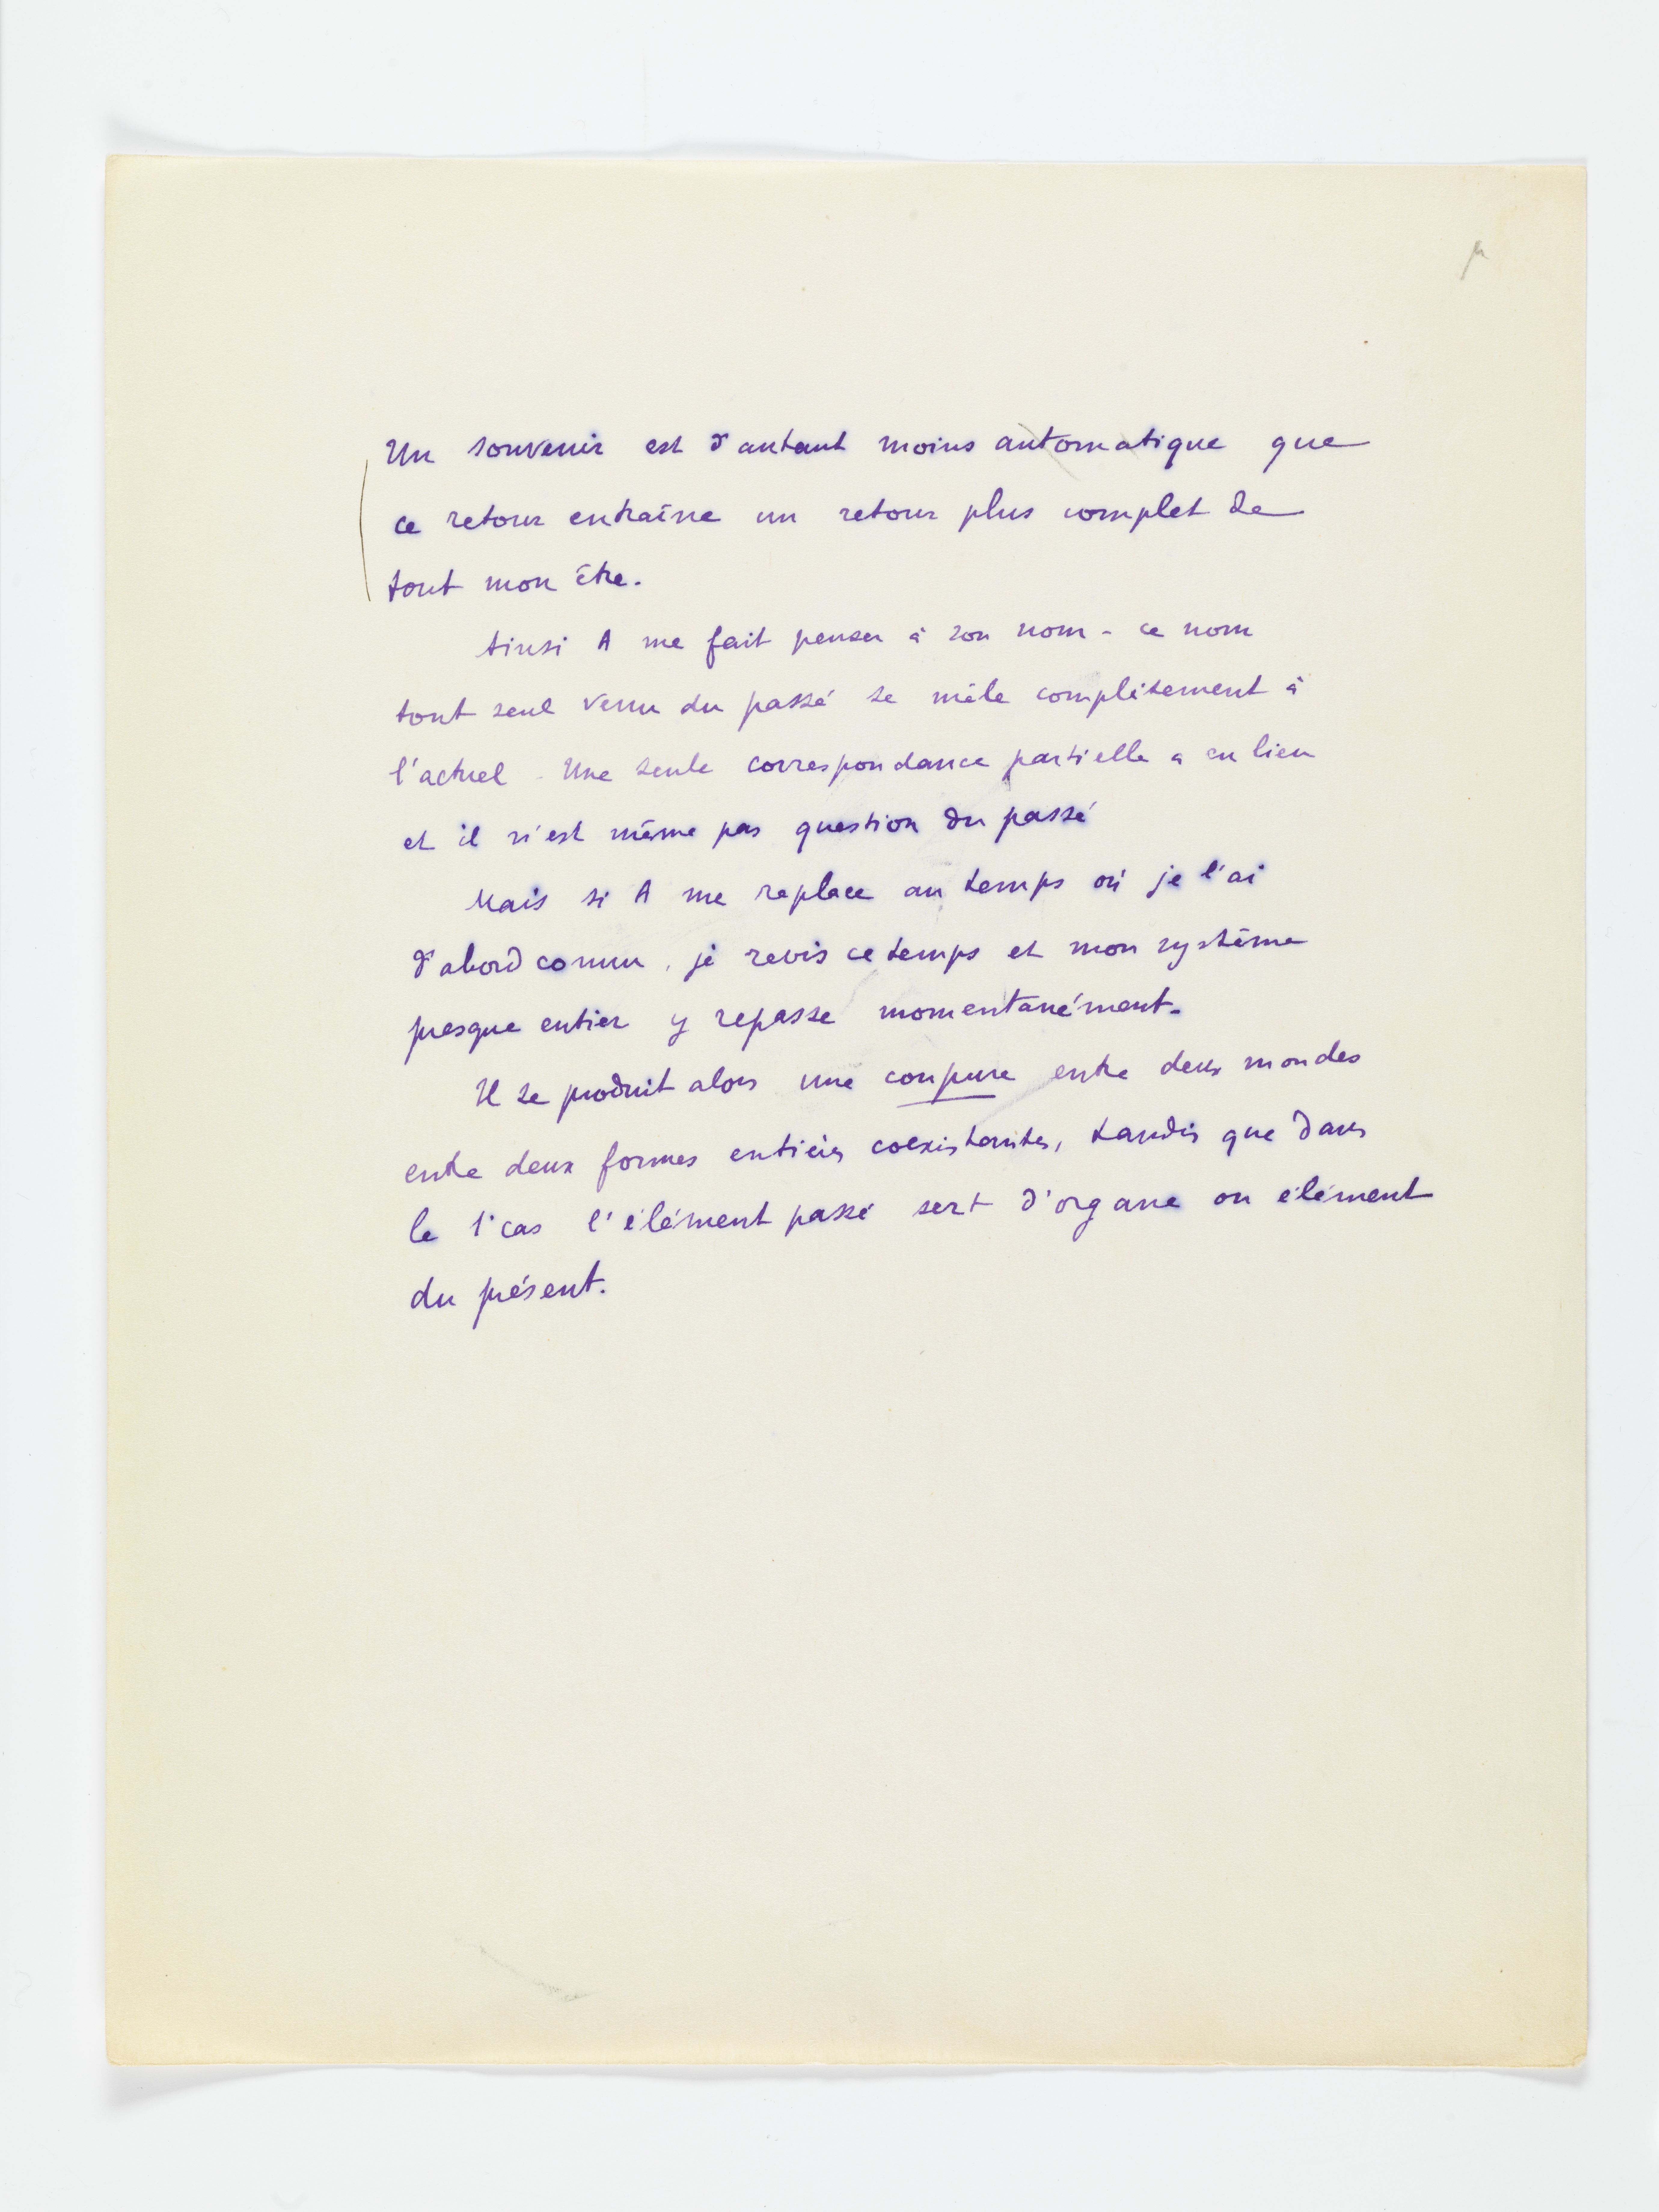 µ
Un souvenir est d'autant moins automatique que
ce retour entraîne un retour plus complet de
tout mon être.
Ainsi A me fait penser à son nom - ce nom
tout seul venu du passé se mêle complètement à
l'actuel. Une seule correspondance partielle a eu lieu
et il n'est même pas question du passé
Mais si A me replace au temps où je l'ai
d'abord connu, je revis ce temps et mon système
presque entier y repasse momentanément.
Il se produit alors une coupure entre deux mondes
entre deux formes entières coexistantes, tandis que dans
le 1° cas l'élément passé sert d'organe ou élément
du présent.